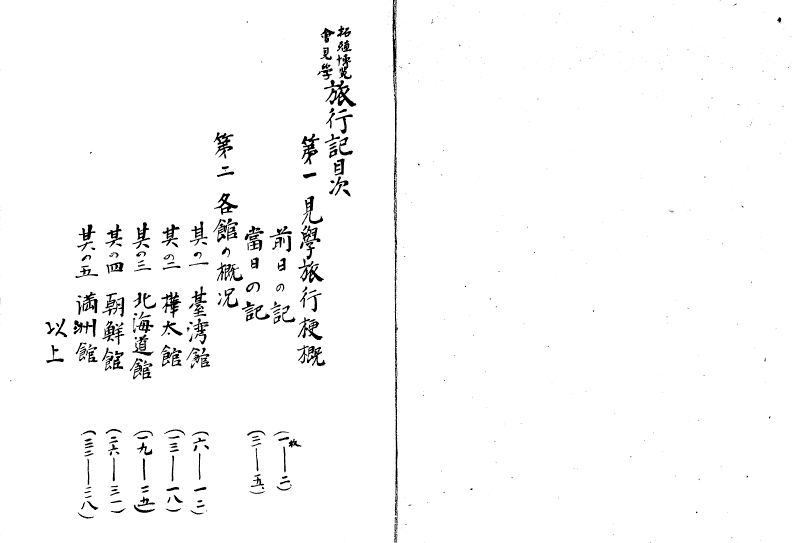 拓殖博覧
會見學
旅行記目次
第一 見學旅行梗概
前日の記 (一枚—二)
當日の記 (三—五)
第二 各館の概況
其の一 臺湾館 (六—一二)
其の二 樺太館 (一三—一八)
其の三 北海道館 (一九—二五)
其の四 朝鮮館 (二六—三一)
其の五 満洲館 (三二—三八)
以上